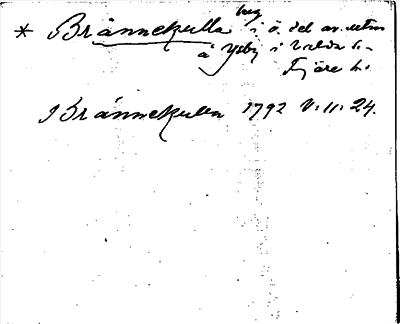 * Brännekulla heg i ö. del av utm.
å Ysby i Valda s.
Fjäre h.
Brännekullen 1792 V:11:24.